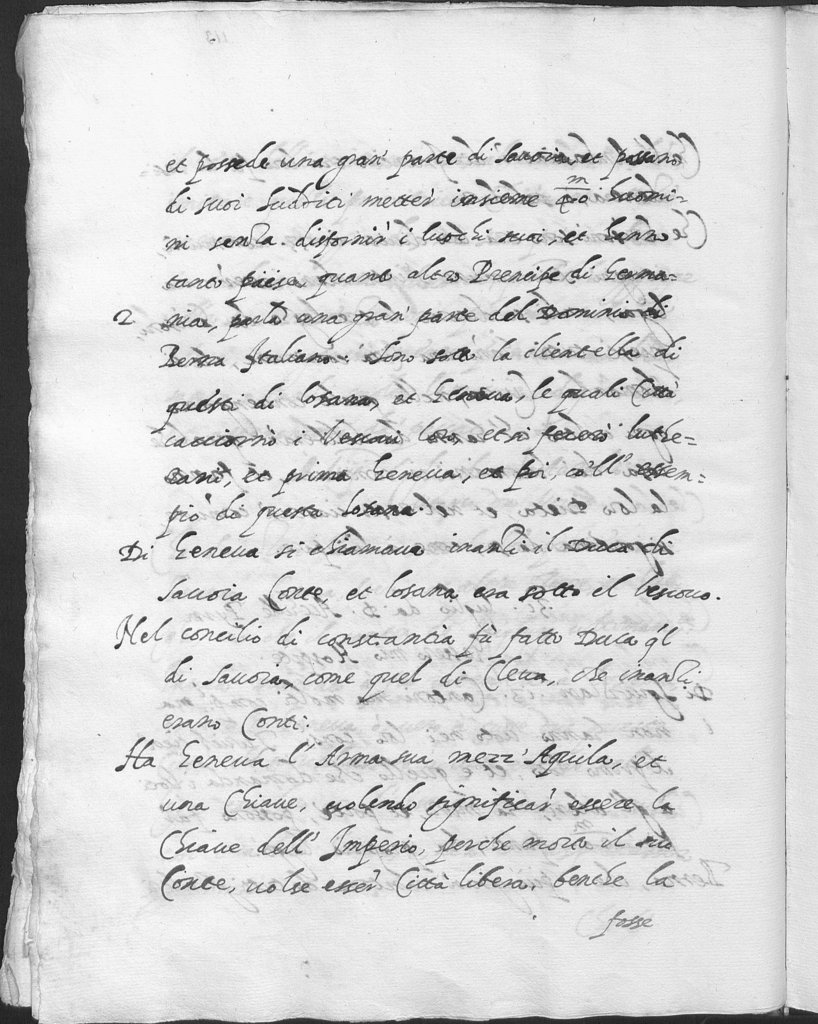 et possede una gran' parte di Sauoia, et possano
di suoi Sudditi metter' insieme 40 m huomi-
ni senza disfornir' i luochi suoi, et hanno
tanto paese quant' altro Prencipe di Germa-
2 nia, parla una gran' parte del Dominio di
Berna Italiano: sono sott' la clientella di
questi di Losana, et Geneua, le quali Città
cacciorno i Vescoui loro, et si fecero luthe-
rani, et prima Geneua, et poi, co'll' essem-
pio di questa Losana.
Di Geneua si chiamaua inanti il Duca di
Sauoia Conte, et Losana era sotto il Vescouo.
Nel concilio di constantia fù fatto Duca q'l
di Sauoia, come quel di Cleua, che inanti
erano Conti.
Ha Geneua l' Arma sua mezz' Aquila, et
una Chiaue, uolendo significar' essere la
Chiaue dell' Imperio, perche morto il suo
Conte, uolse esser' Città libera, benche la
fosse